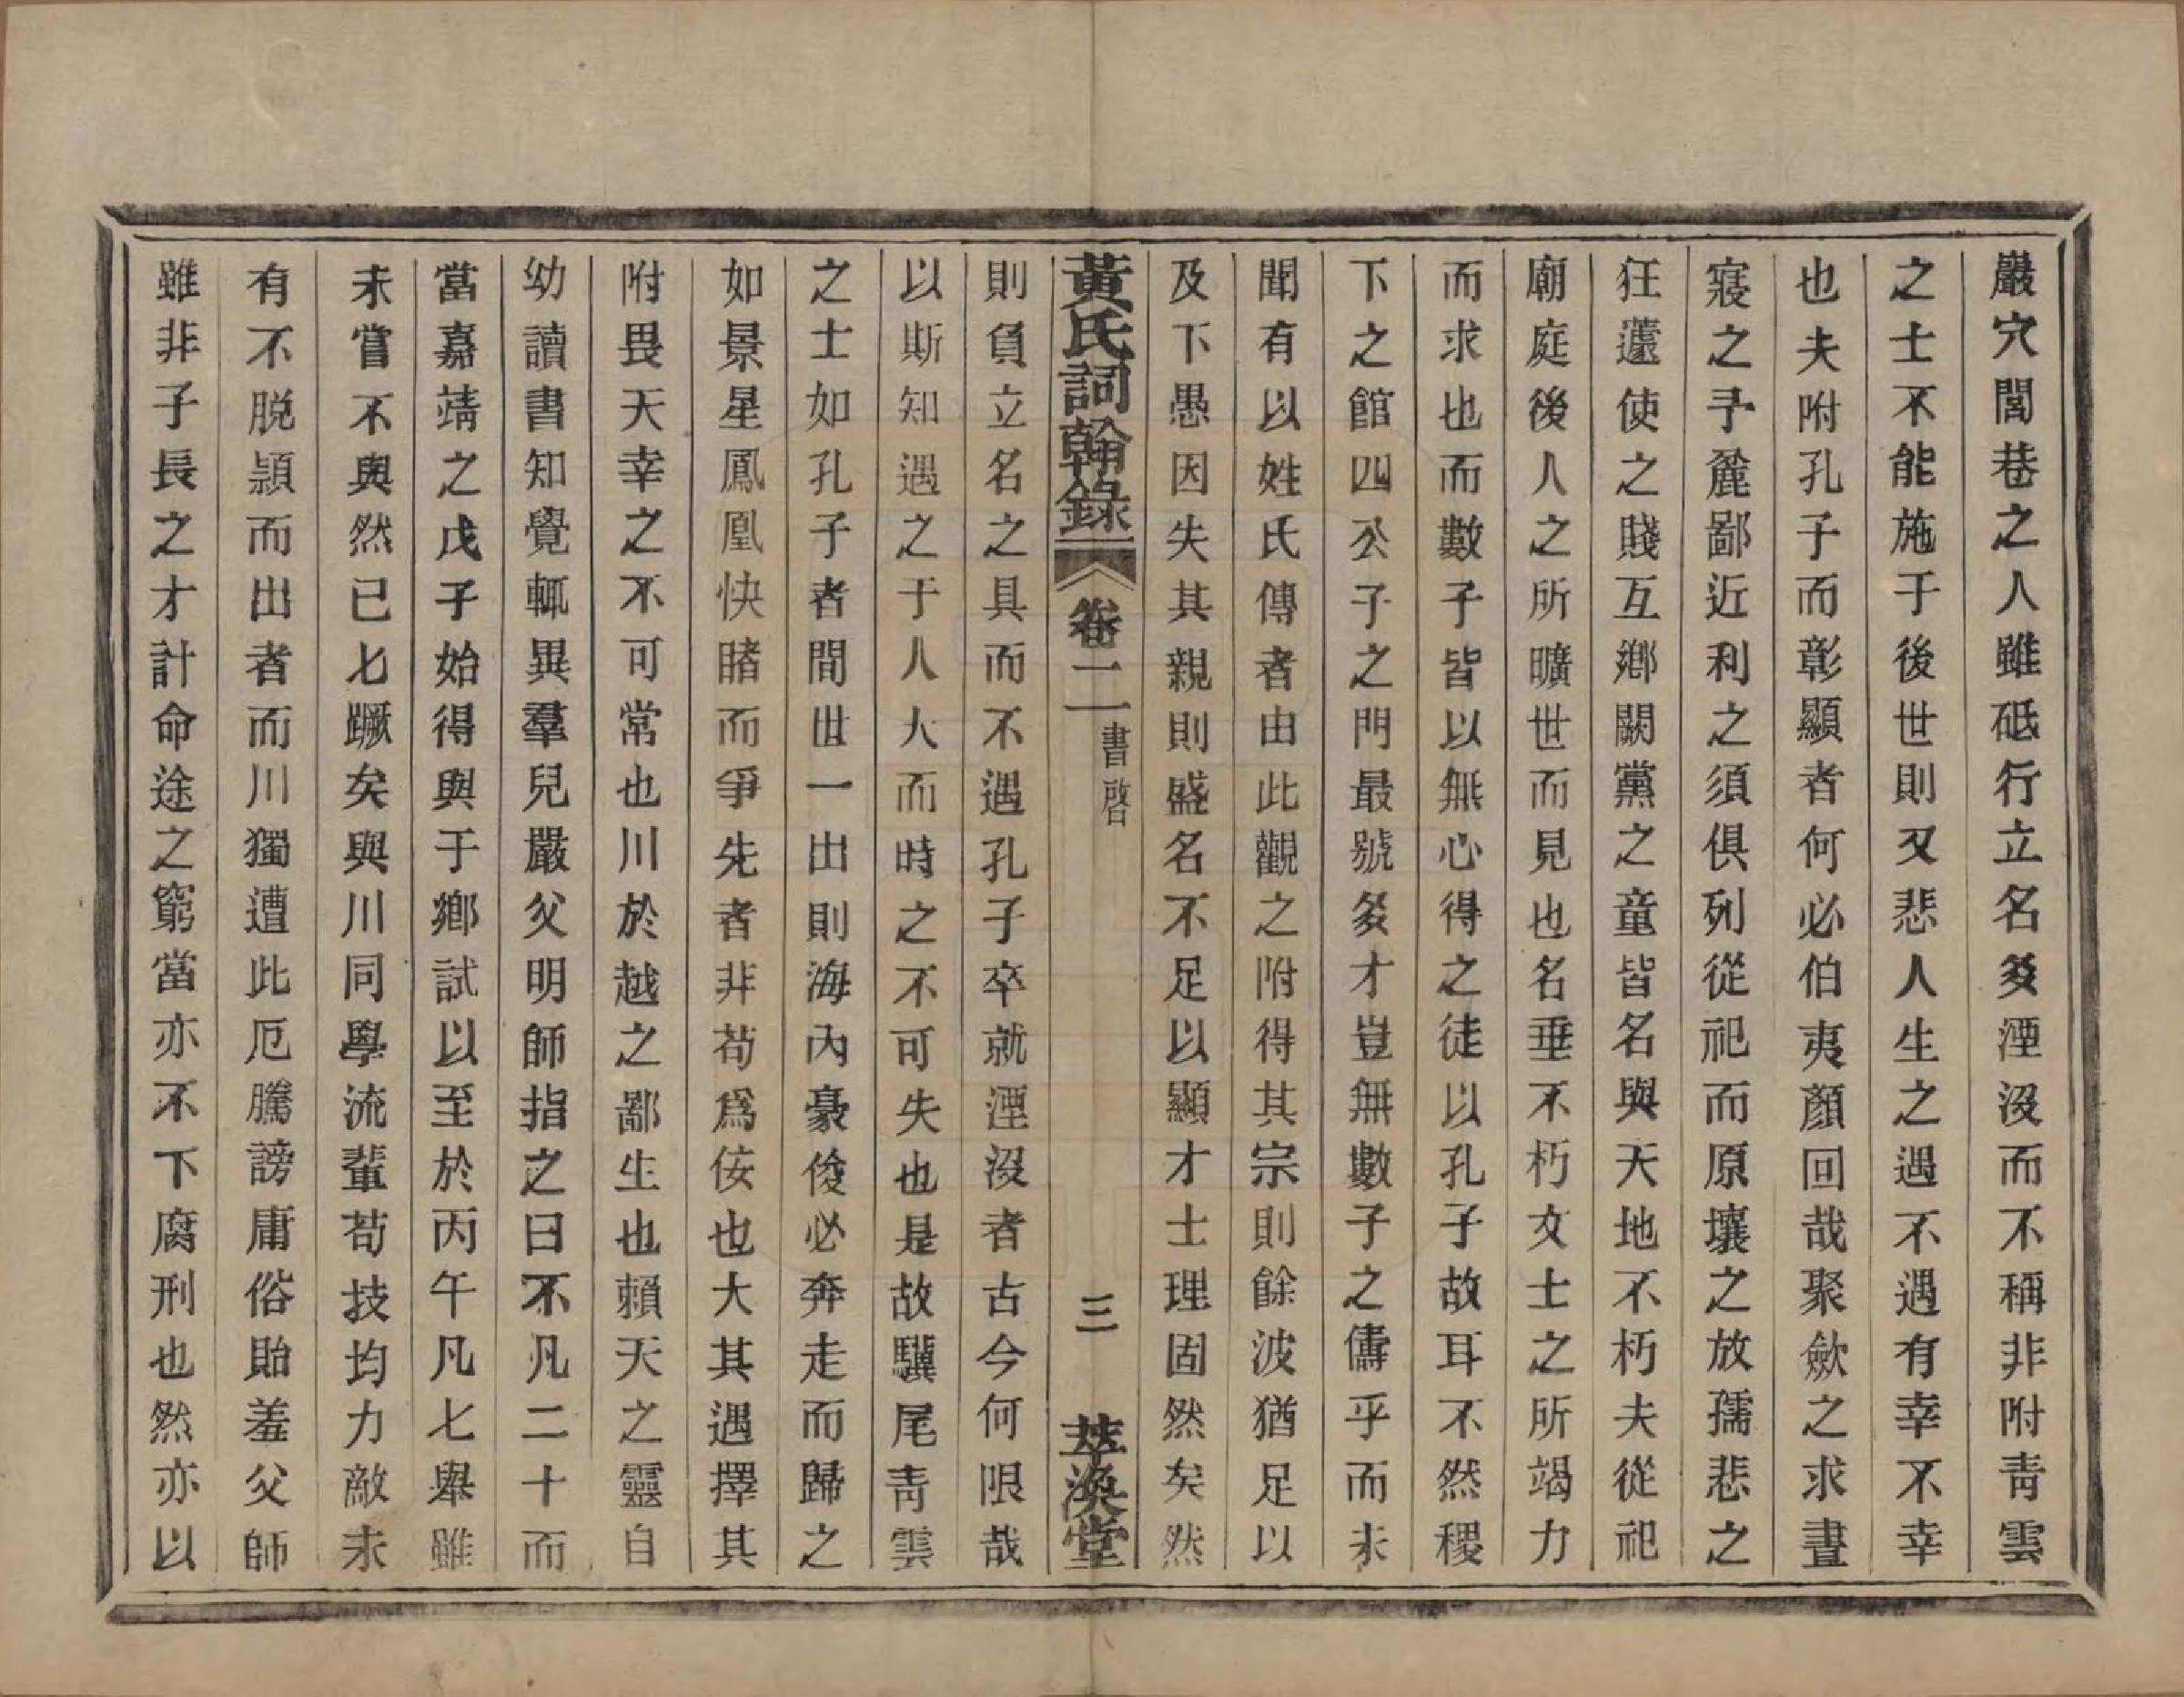 巖穴閭巷之人雖砥行立名㸚湮沒而不稱非附青雲
之士不能施于後世則又悲人生之遇不遇有幸不幸
也夫附孔子而彰顯者何必伯夷顏回哉聚歛之求晝
寢之予麄鄙近利之須俱列從祀而原壤之放孺悲之
狂蘧使之賤互鄉闕黨之童皆名與天地不朽夫從祀
廟庭後人之所曠世而見也名垂不朽文士之所竭力
而求也而數子皆以無心得之徒以孔子故耳不然稷
下之館四公子之門最號多才豈無數子之儔乎而未
聞有以姓氏傳者由此觀之附得其宗則餘波猶足以
及下愚因失其親則盛名不足以顯才士理固然矣然
黃氏詞翰錄 卷二 書啓 三 萃渙堂
則負立名之具而不遇孔子卒就湮沒者古今何限哉
以斯知遇之于人大而時之不可失也是故驥尾青雲
之士如孔子者間世一出則海內豪俊必奔走而歸之
如景星鳳凰快睹而爭先者非苟爲佞也大其遇擇其
附畏天幸之不可常也川於越之鄙生也賴天之靈自
幼讀書知覺輒異羣兒嚴父明師指之曰不凡二十而
當嘉靖之戊子始得與于鄉試以至於丙午凡七舉雖
未嘗不與然已七蹶矣與川同學流輩苟技均力敵未
有不脱穎而出者而川獨遭此厄騰謗庸俗貽羞父師
雖非子長之才計命途之窮當亦不下腐刑也然亦以